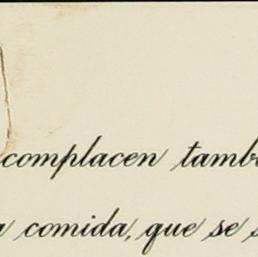 complacen tamb
comida, que se s